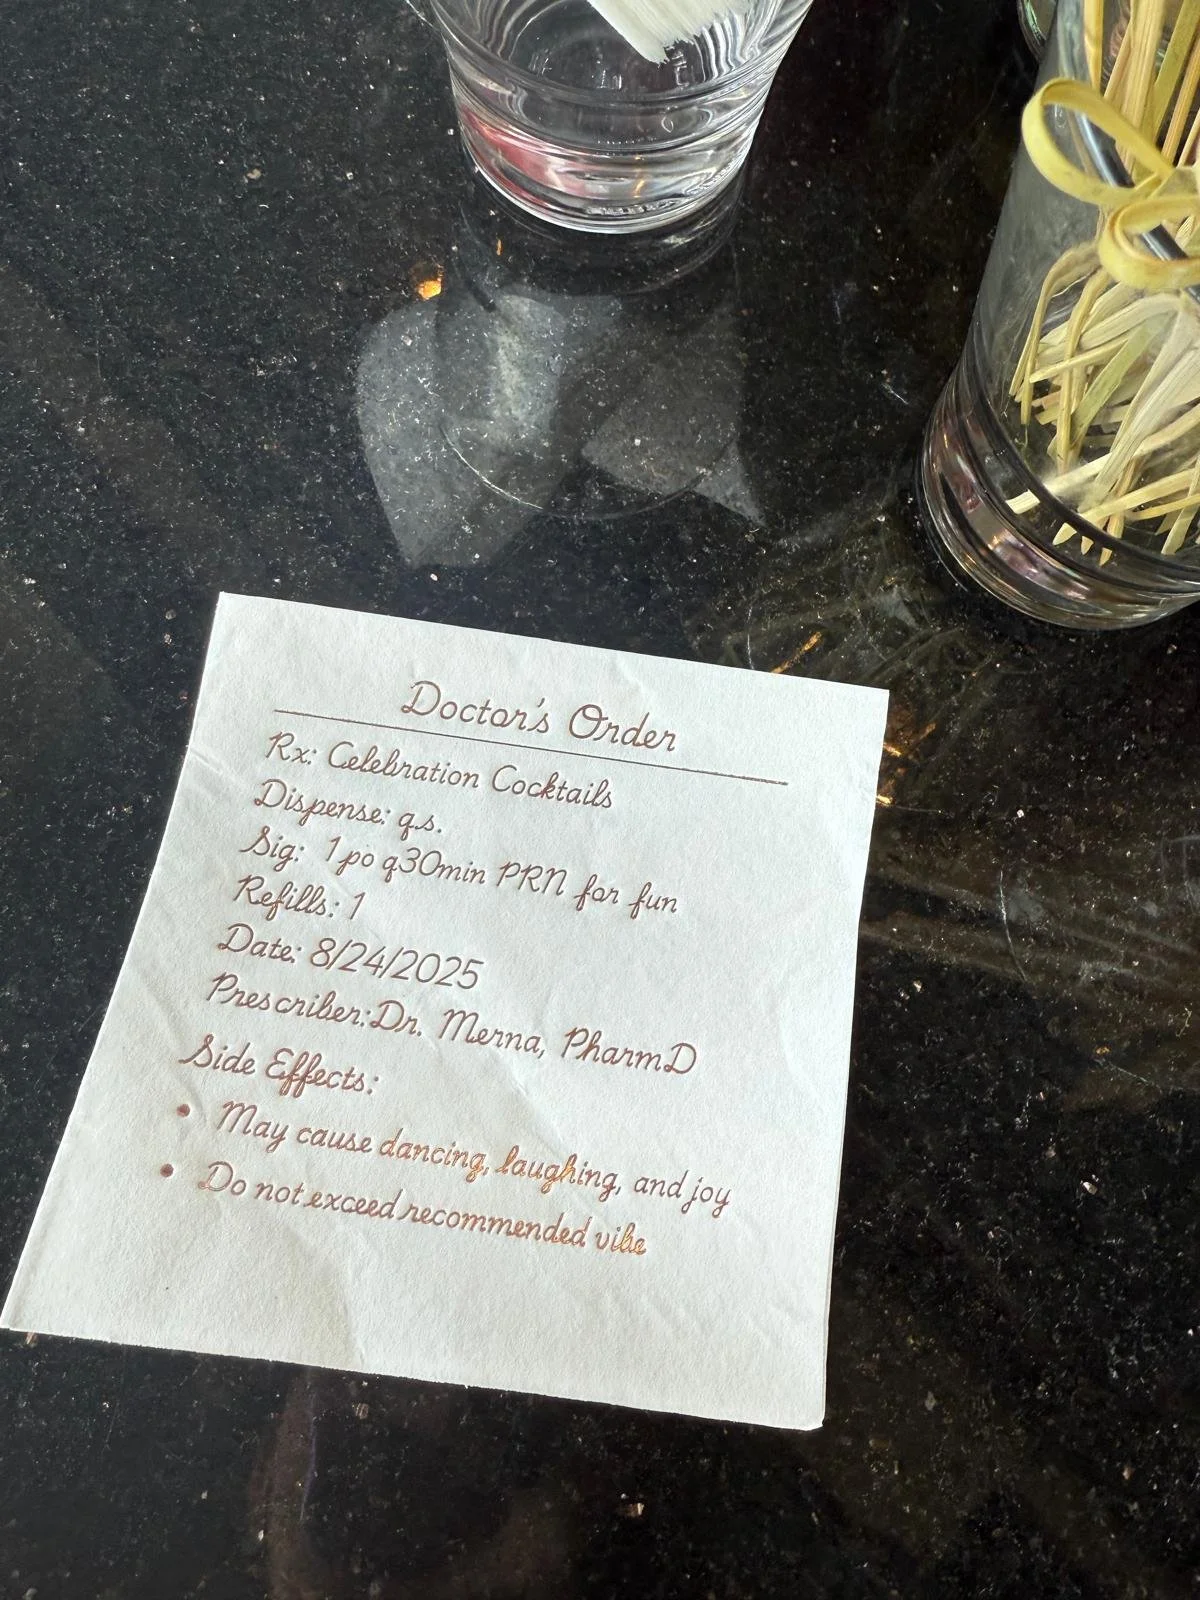 Doctor's Order
Rx: Celebration Cocktails
Dispense: q.s.
Sig: 1 po q30min PRN for fun
Refills: 1
Date: 8/24/2025
Prescriber: Dr. Merna, PharmD
Side Effects:
• May cause dancing, laughing, and joy
• Do not exceed recommended vibe